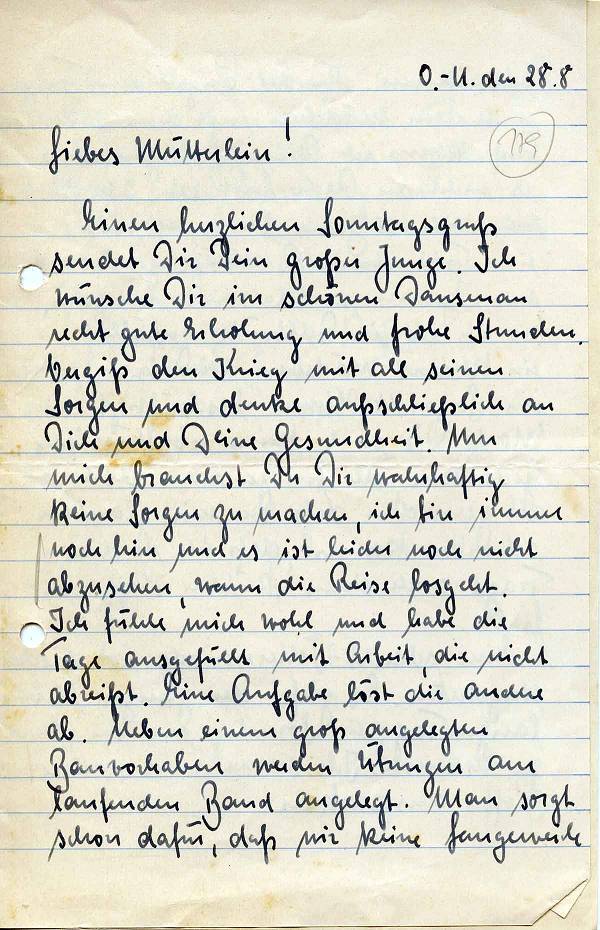 O.-U. den 28.8
179
Liebes Mütterlein!
Einen herzlichen Sonntagsgruß
sendet Dir Dein großer Junge. Ich
wünsche Dir im schönen
recht gute Erholung und frohe Stunden.
Vergiß den Krieg mit all seinen
Sorgen und denke außschließlich an
Dich und Deine Gesundheit. Um
mich brauchst Du Dir wahrhaftig
keine Sorgen zu machen, ich bin immer
noch hier und es ist leider noch nicht
abzusehen, wann die Reise losgeht.
Ich fühle mich wohl und habe die
Tage ausgefüllt mit Arbeit, die nicht
abreißt. Eine Aufgabe löst die andere
ab. Neben einem groß angelegten
Bauvorhaben werden Übungen am
laufenden Band angelegt. Man sorgt
schon dafür, daß wir keine Langeweile